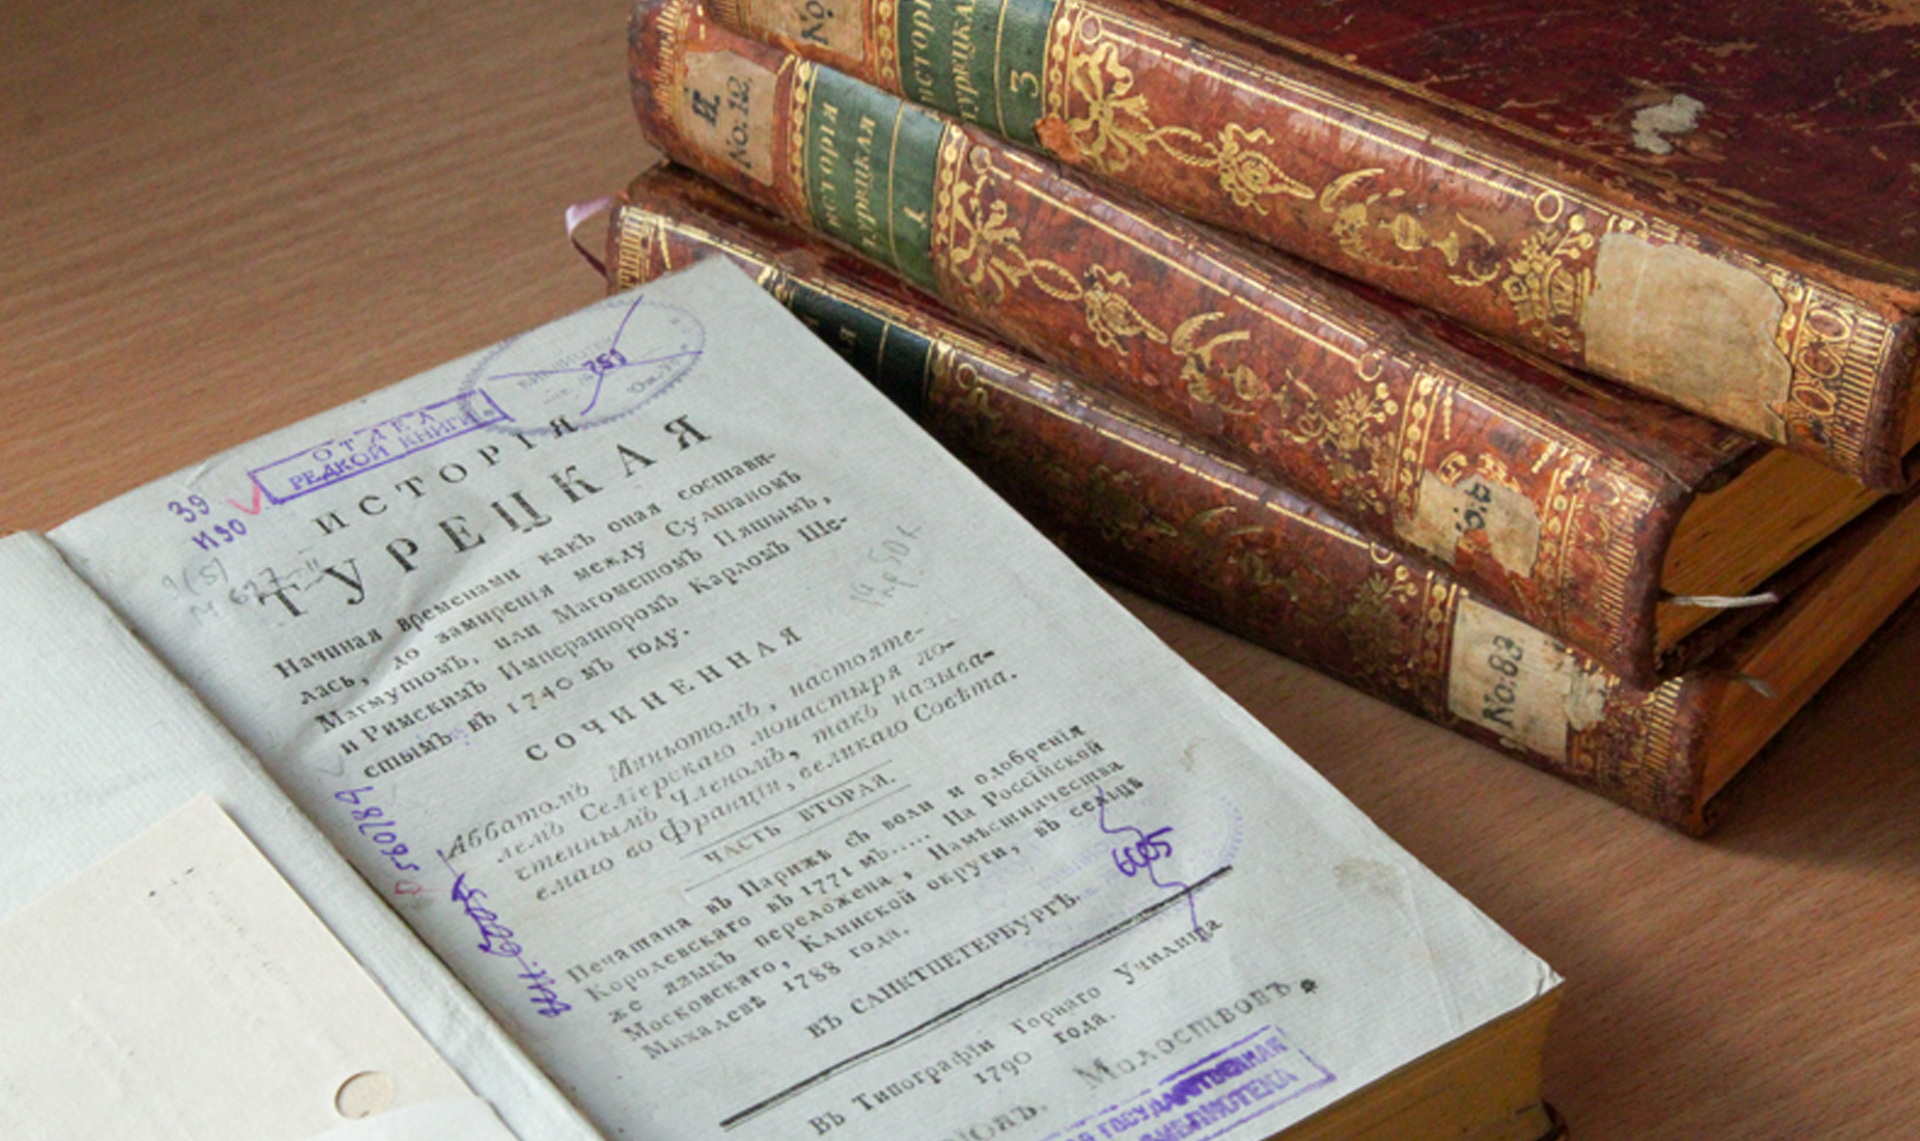 No
ИСТОРІ
ТУРЕЦКАЯ
3
И.
No. 12.
ИСТОРІЯ
ТУРЕЦКАЯ
No. 83
БИБЛИОТЕ
152
ОТДЕЛ
РЕДКОЙ КНИГИ
39
И90
9(5)
М 627-II
ИСТОРІЯ
ТУРЕЦКАЯ
Начиная временами какъ оная состави-
лась, до замиренія между Султаномъ
Магмутомъ, или Магометомъ Пятымъ,
и Римскимъ Императоромъ Карломъ Ше-
стымъ въ 1740 мъ году.
СОЧИНЕННАЯ
Аббатомъ Миньотомъ, настояте-
лемъ Селіерскаго монастыря по-
чтеннымъ Членомъ, такъ называ-
емаго во Франціи, великаго Совѣта.
ЧАСТЬ ВТОРАЯ.
Печатана въ Парижѣ съ воли и одобренія
Королевскаго въ 1771 мъ..... На Россійской
же языкъ переложена, Намѣстничества
Московскаго, Клинской округи, въ сельцѣ
Михалевѣ 1788 года.
ВЪ САНКТПЕТЕРБУРГѢ
Въ Типографіи Горнаго Училища
1790 года.
Молоствовъ
ГОСУДАРСТВЕННАЯ
БИБЛИОТЕКА
560789